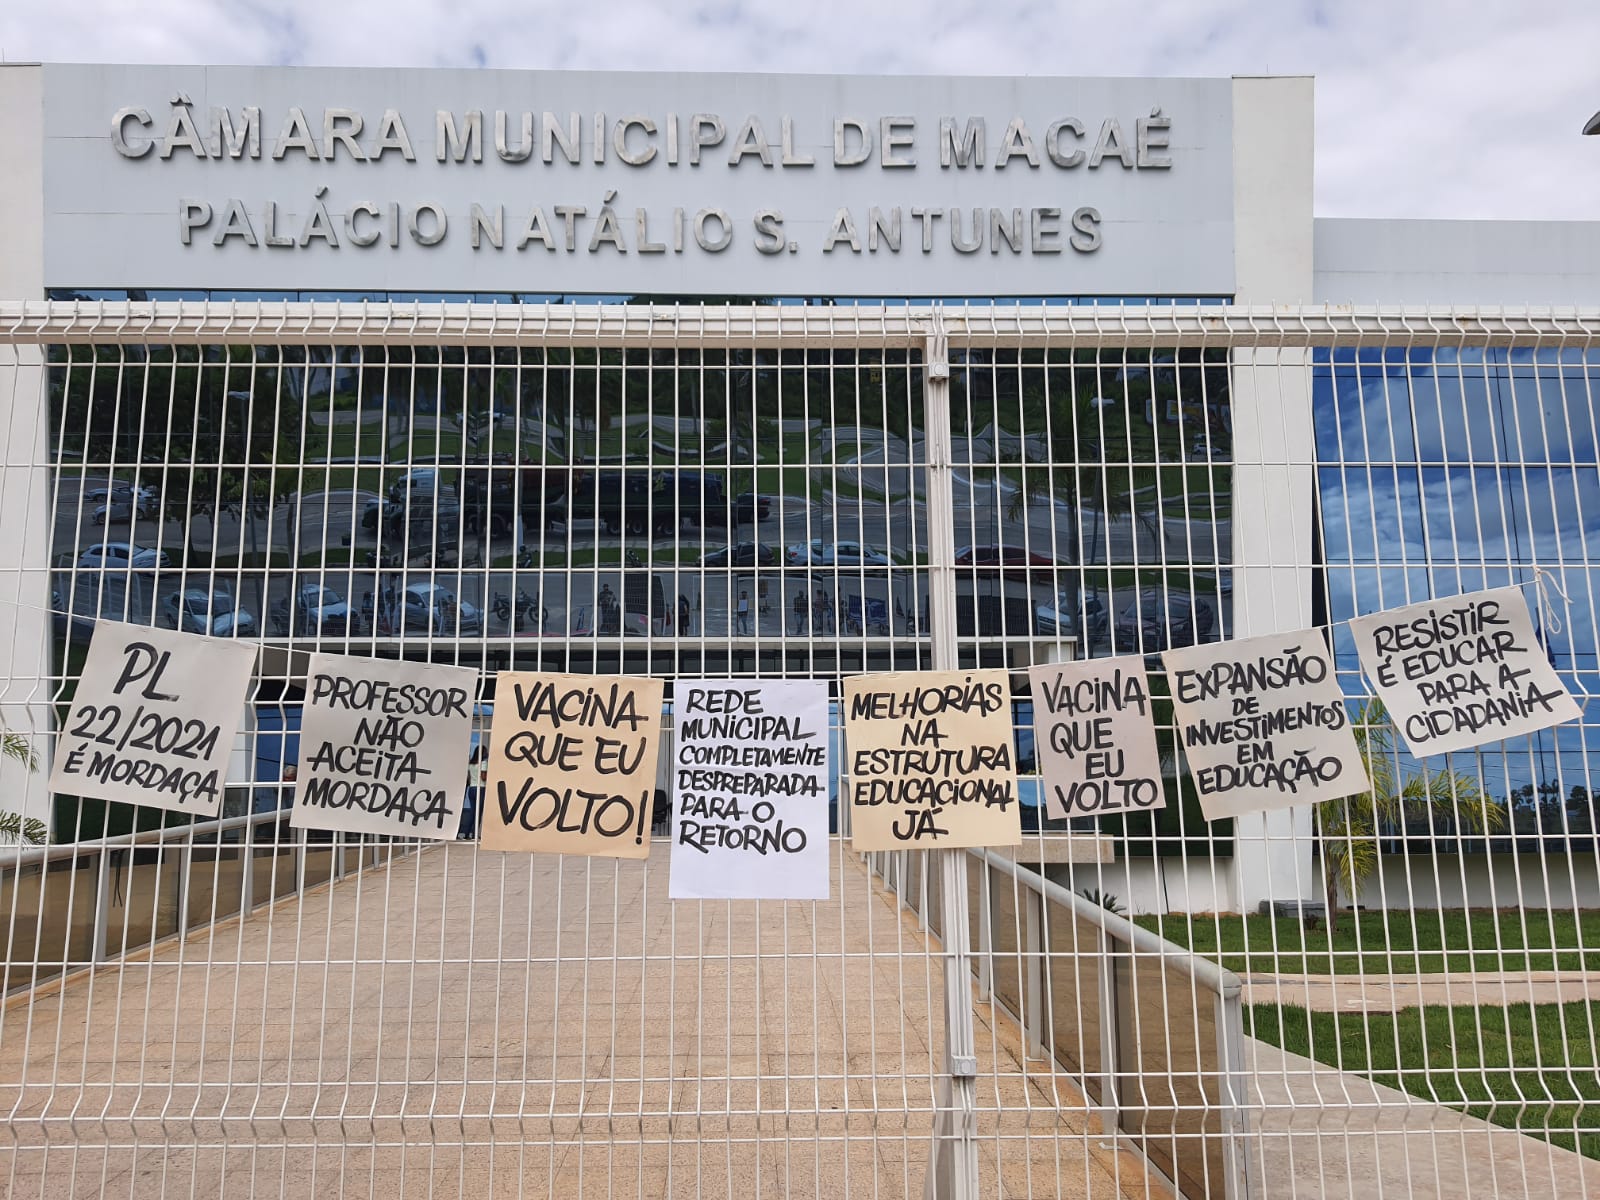 CÂMARA MUNICIPAL DE MACAÉ
PALÁCIO NATÁLIO S. ANTUNES
PL
22/2021
É MORDAÇA
PROFESSOR
NÃO
ACEITA
MORDAÇA
VACINA
QUE EU
VOLTO!
REDE
MUNICIPAL
COMPLETAMENTE
DESPREPARADA
PARA O
RETORNO
MELHORIAS
NA
ESTRUTURA
EDUCACIONAL
JÁ
VACINA
QUE
EU
VOLTO
EXPANSÃO
DE
INVESTIMENTOS
EM
EDUCAÇÃO
RESISTIR
É EDUCAR
PARA A
CIDADANIA